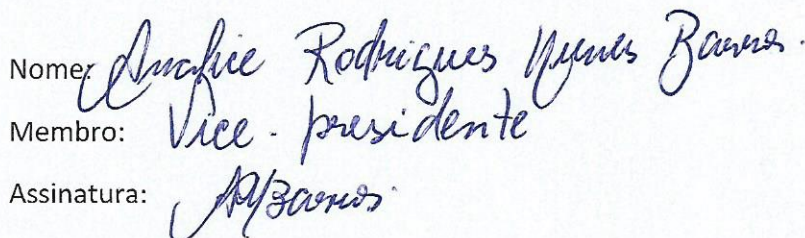 Nome: Rodrigues Nunes Barros.
Membro: Vice-presidente
Assinatura: Barros